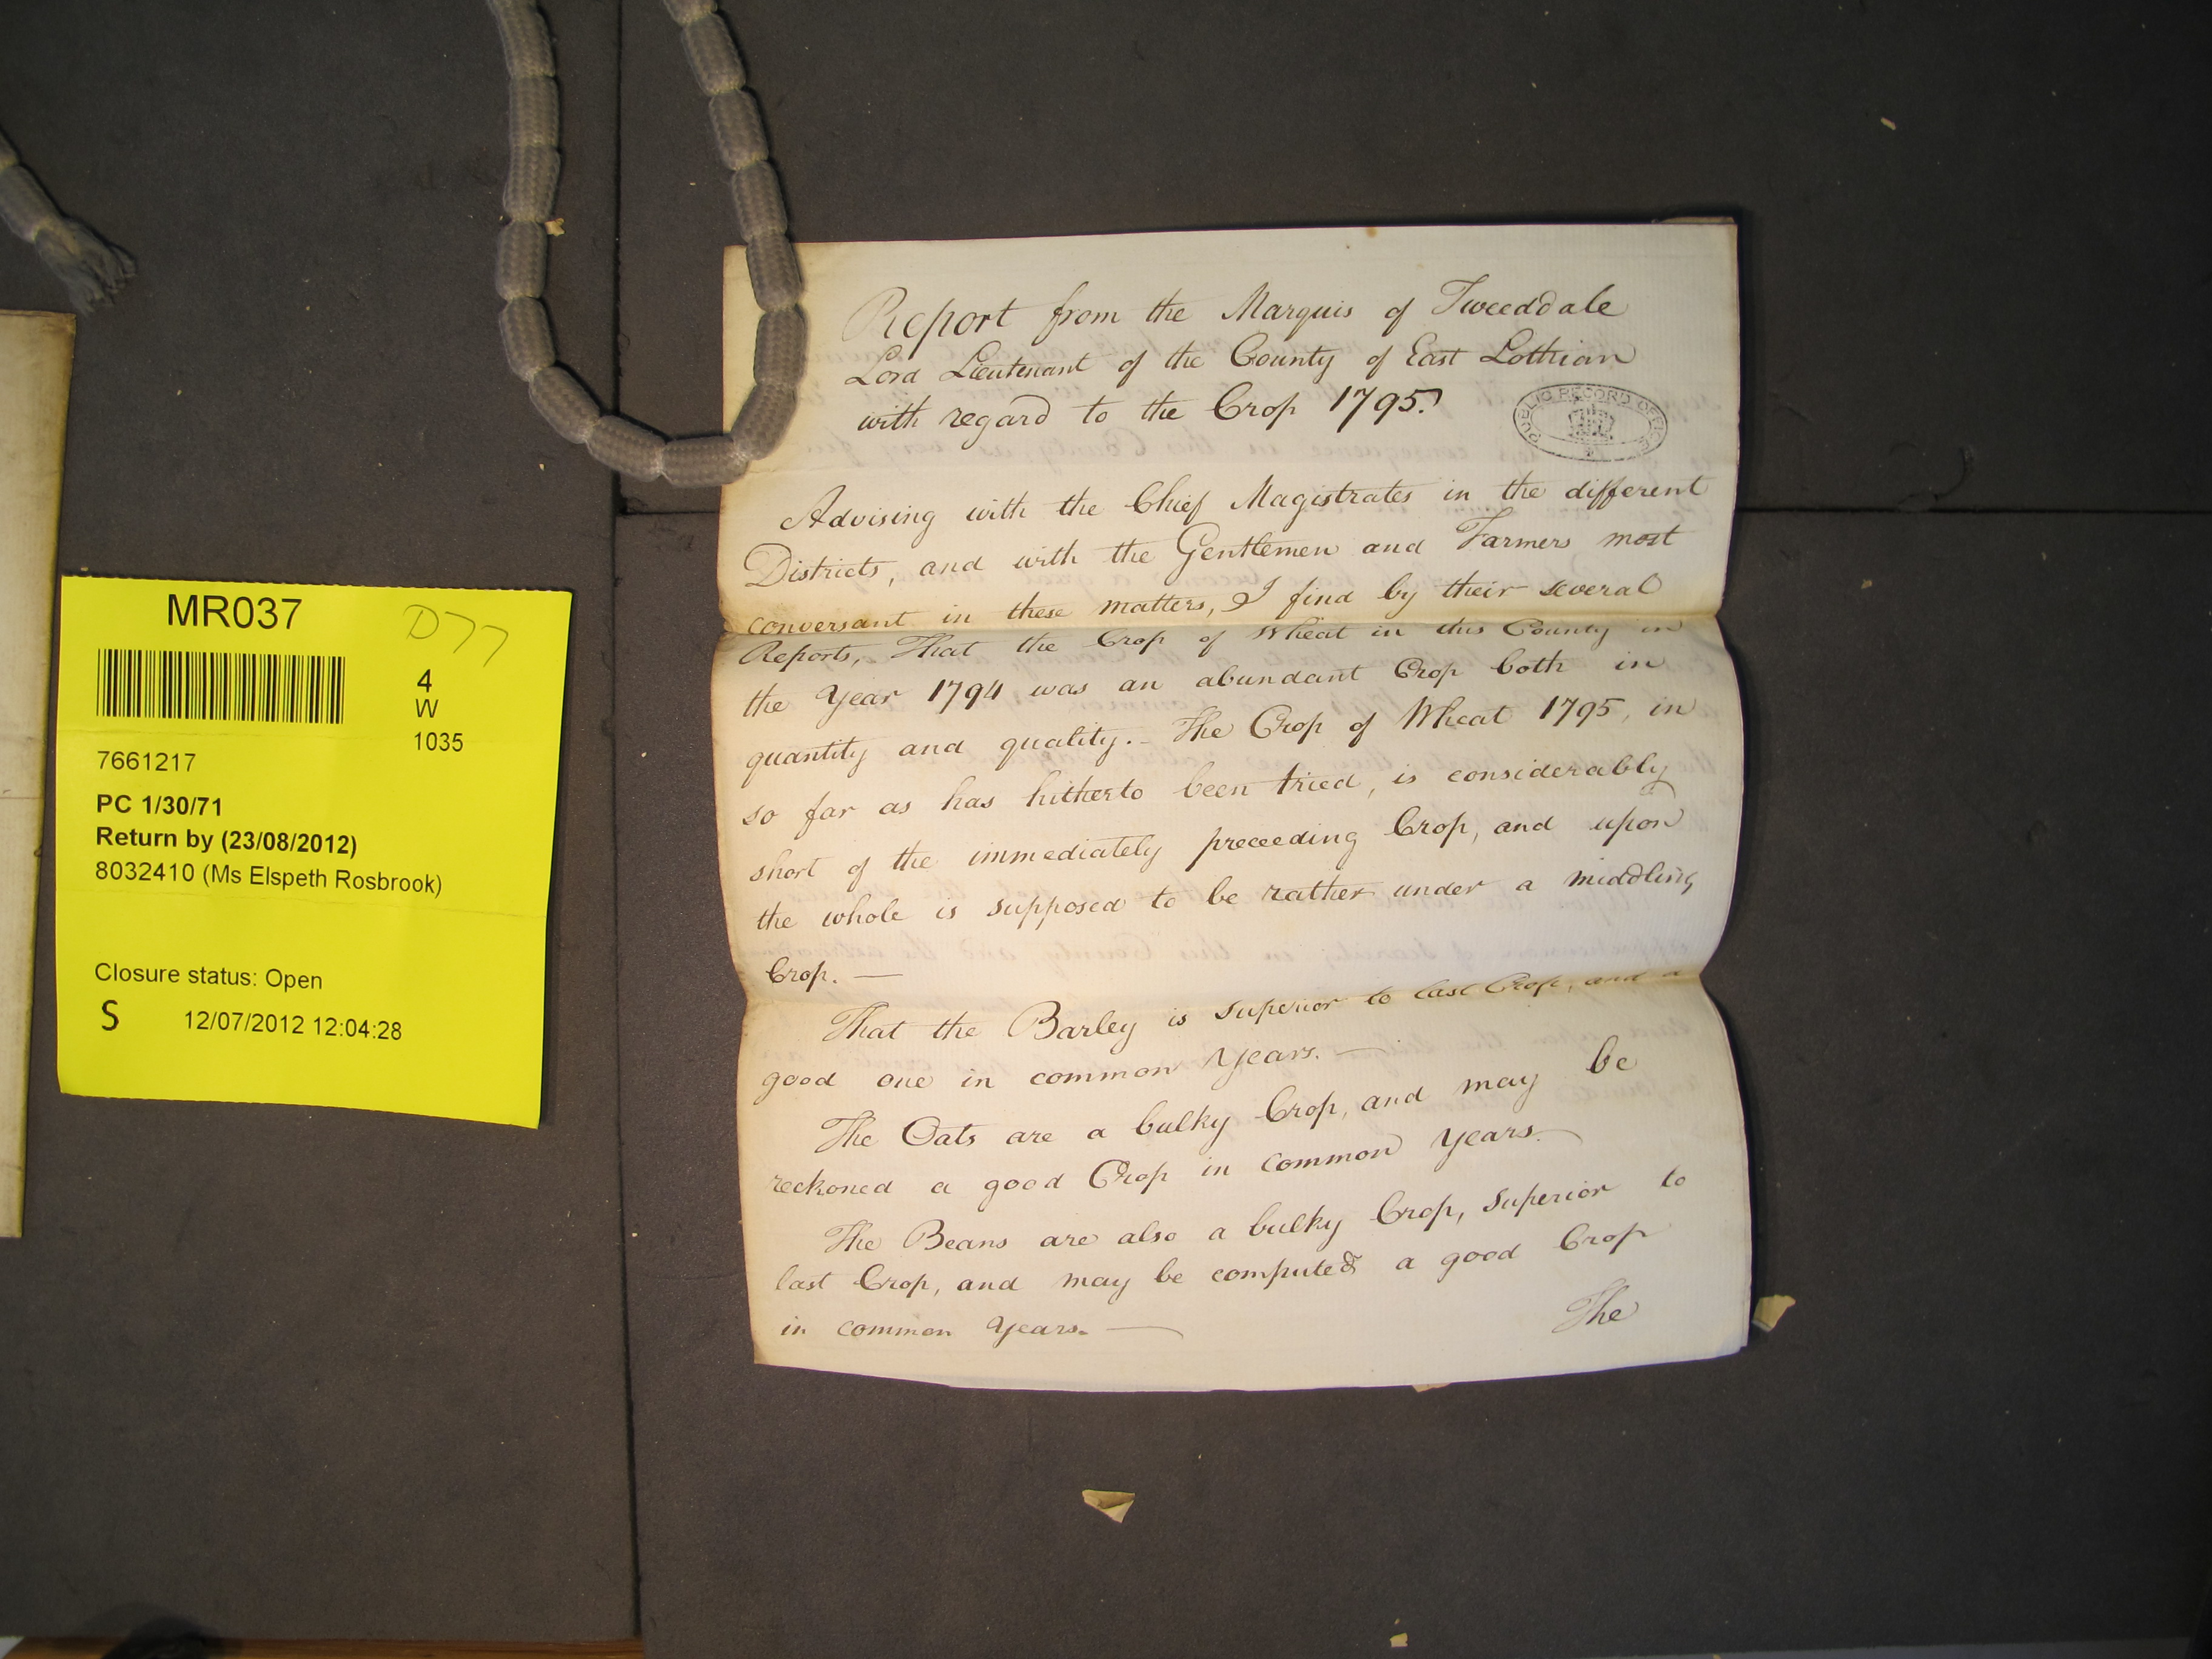 MR037
D77
4
W
1035
7661217
PC 1/30/71
Return by (23/08/2012)
8032410 (Ms Elspeth Rosbrook)
Closure status: Open
S 12/07/2012 12:04:28
Report from the Marquis of Tweeddale
Lord Lieutenant of the County of East Lothian
with regard to the Crop 1795.
PUBLIC RECORD OFFICE
Advising with the Chief Magistrates in the different
Districts, and with the Gentlemen and Farmers most
conversant in these matters, I find by their several
Reports, That the Crop of Wheat in this County in
the Year 1794 was an abundant Crop both in
quantity and quality. – The Crop of Wheat 1795, in
so far as has hitherto been tried, is considerably
short of the immediately preceeding Crop, and upon
the whole is supposed to be rather under a middling
Crop. —
That the Barley is superior to last Crop, and a
good one in common Years. —
The Oats are a bulky Crop, and may be
reckoned a good Crop in common Years. —
The Beans are also a bulky Crop, superior to
last Crop, and may be computed a good Crop
in common Years. —
The